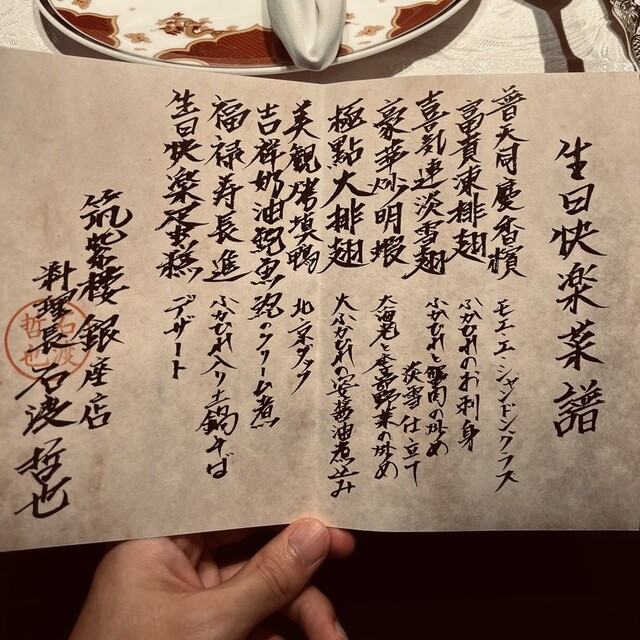 生日快楽菜譜
普天同慶香檳
モエ・エ・シャンドングラス
富貴涷排翅
ふかひれのお刺身
喜氣連淡雪翅
ふかひれと蟹肉の炒め
淡雪仕立て
豪華炒明蝦
大海老と季節野菜の炒め
極點大排翅
大ふかひれの姿醤油煮込み
美観烤填鴨
北京ダック
吉祥奶油鮑魚
鮑のクリーム煮
福禄寿長進
ふかひれ入り土鍋そば
生日快樂蛋糕
デザート
筑紫樓銀座店
料理長 石波 哲也
石波
哲也